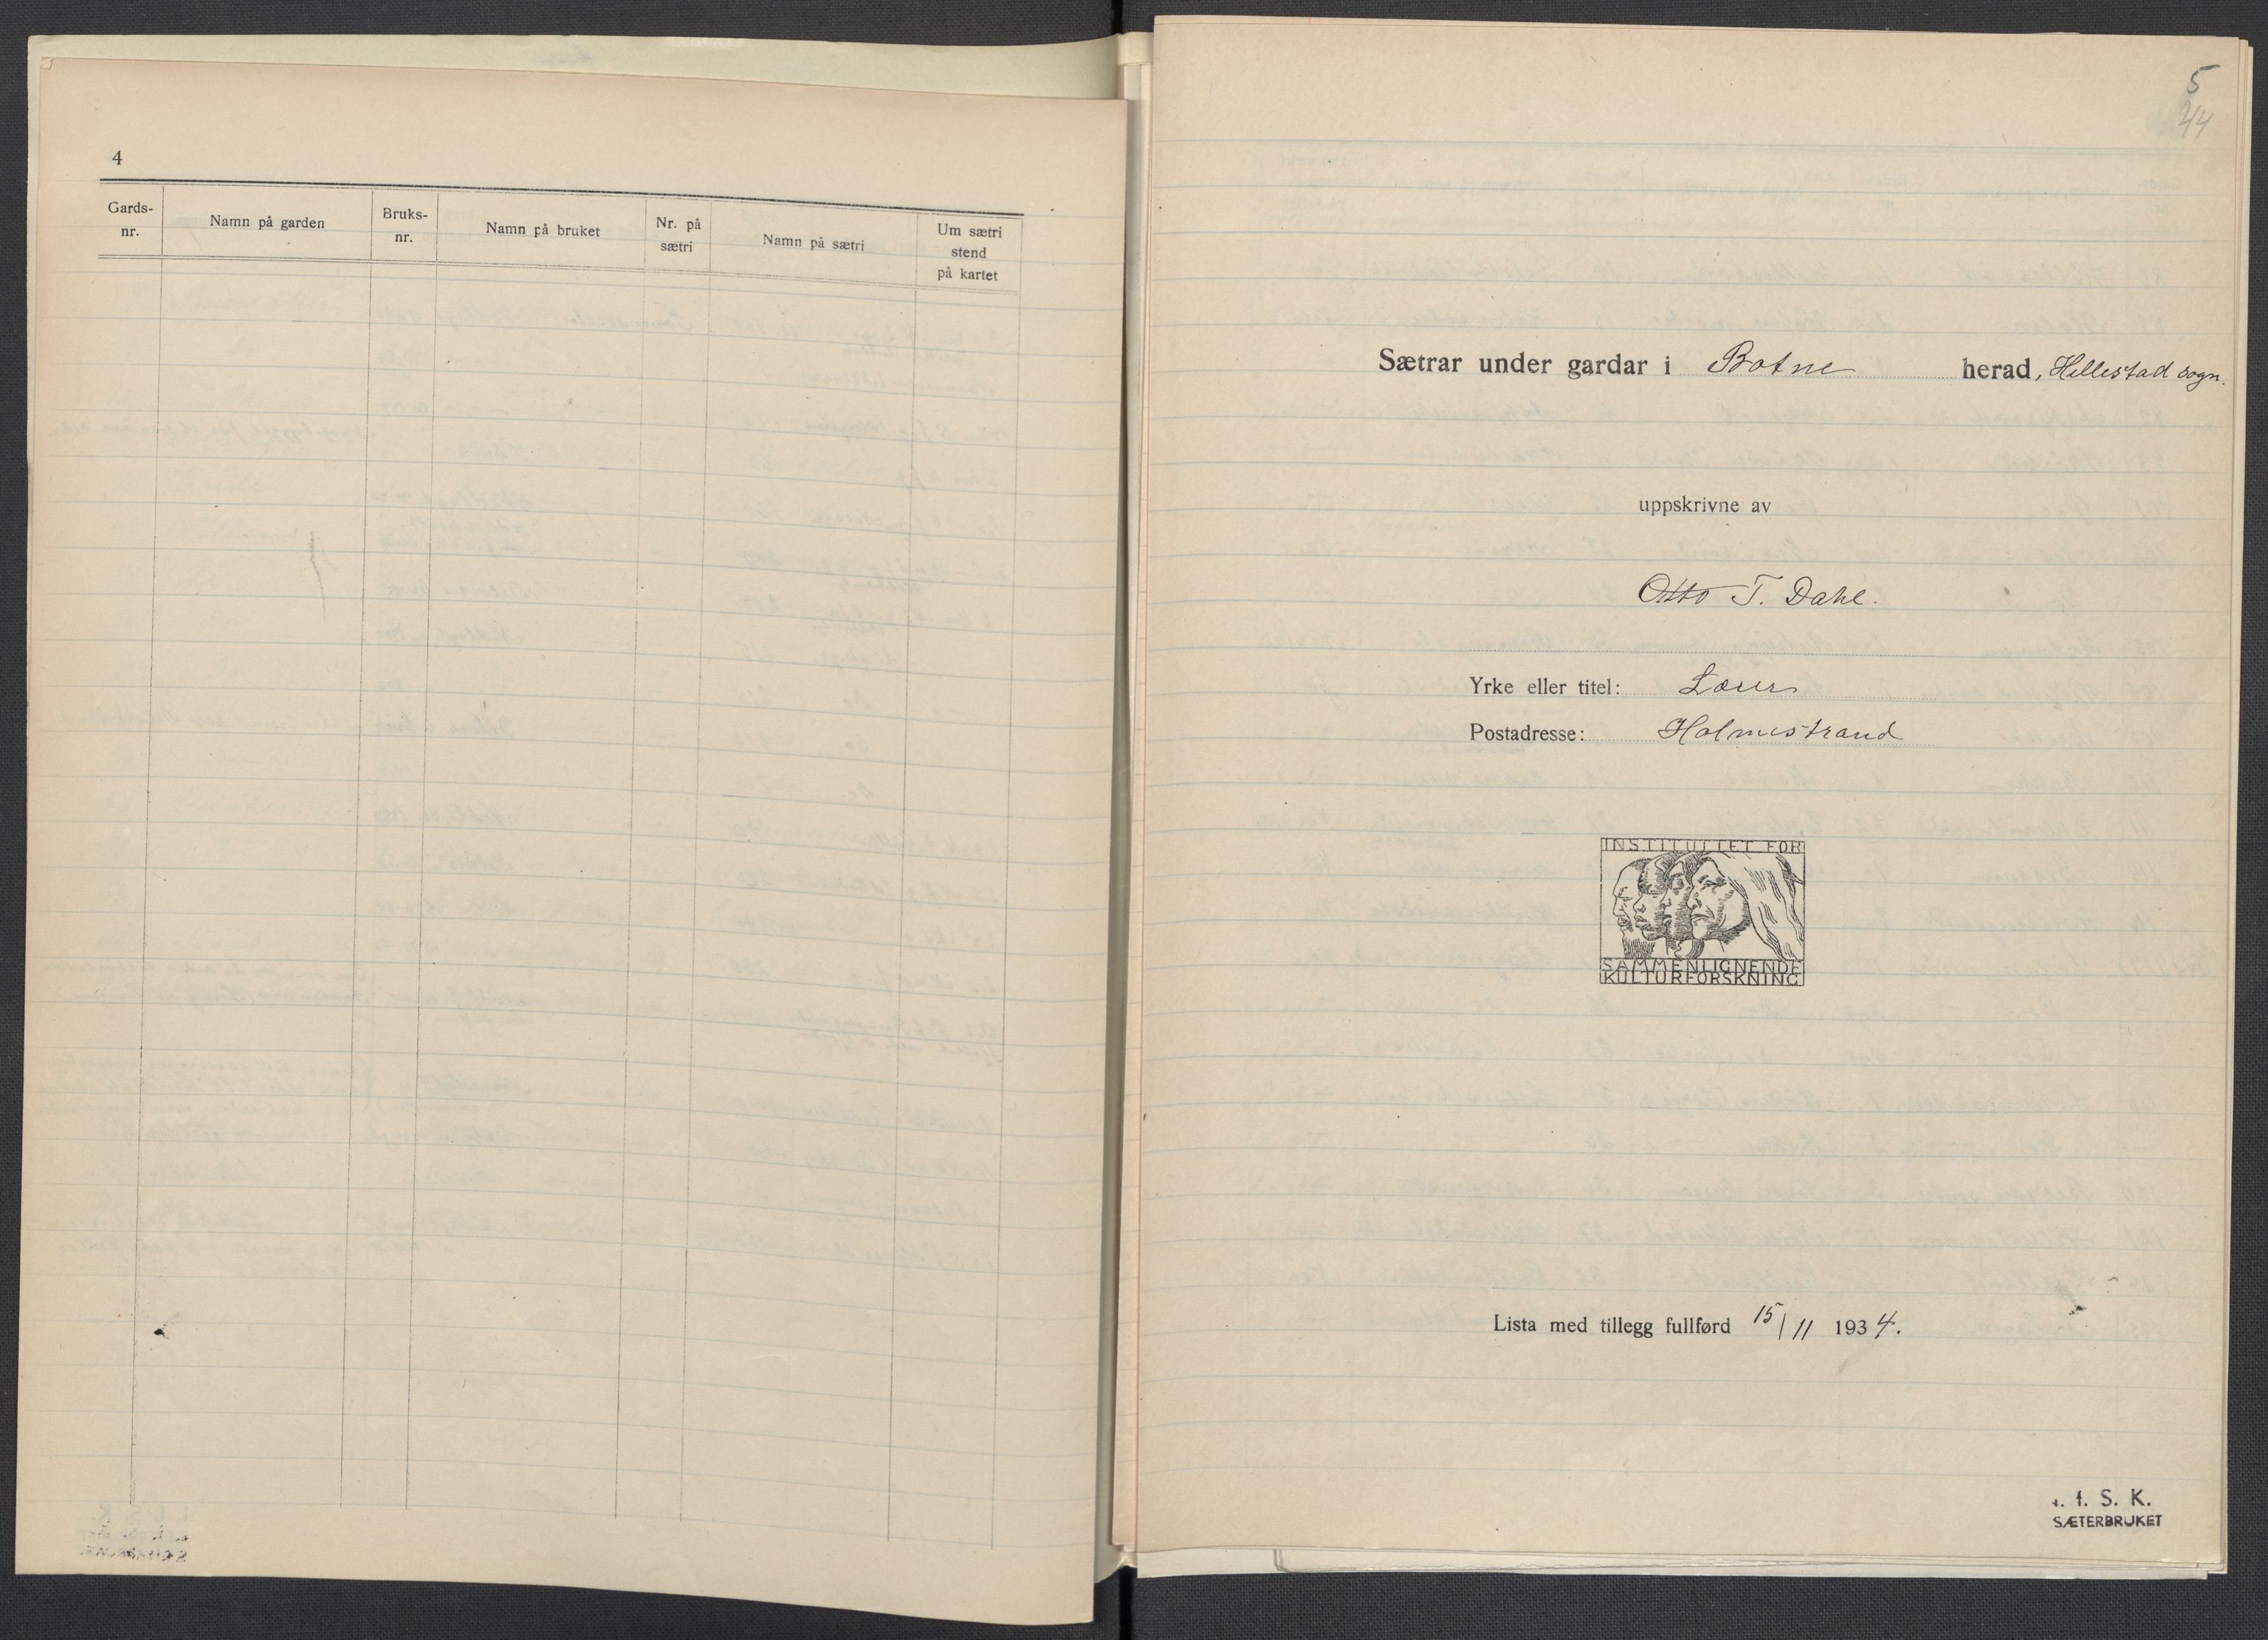 4
Gards-
nr.
Namn på garden
Bruks-
nr.
Namn på bruket
Nr. på
sætri
Namn på sætri
Um sætri
stend
på kartet
5
44
Sætrar under gardar i Botne herad, Hillestad sogn.
uppskrivne av
Otto T. Dahl.
Yrke eller titel: Lærer
Postadresse: Holmestrand
INSTITUTTET FOR
SAMMENLIGNENDE
KULTURFORSKNING
Lista med tillegg fullførd 15/11 1934.
I. f. S. K.
SÆTERBRUKET